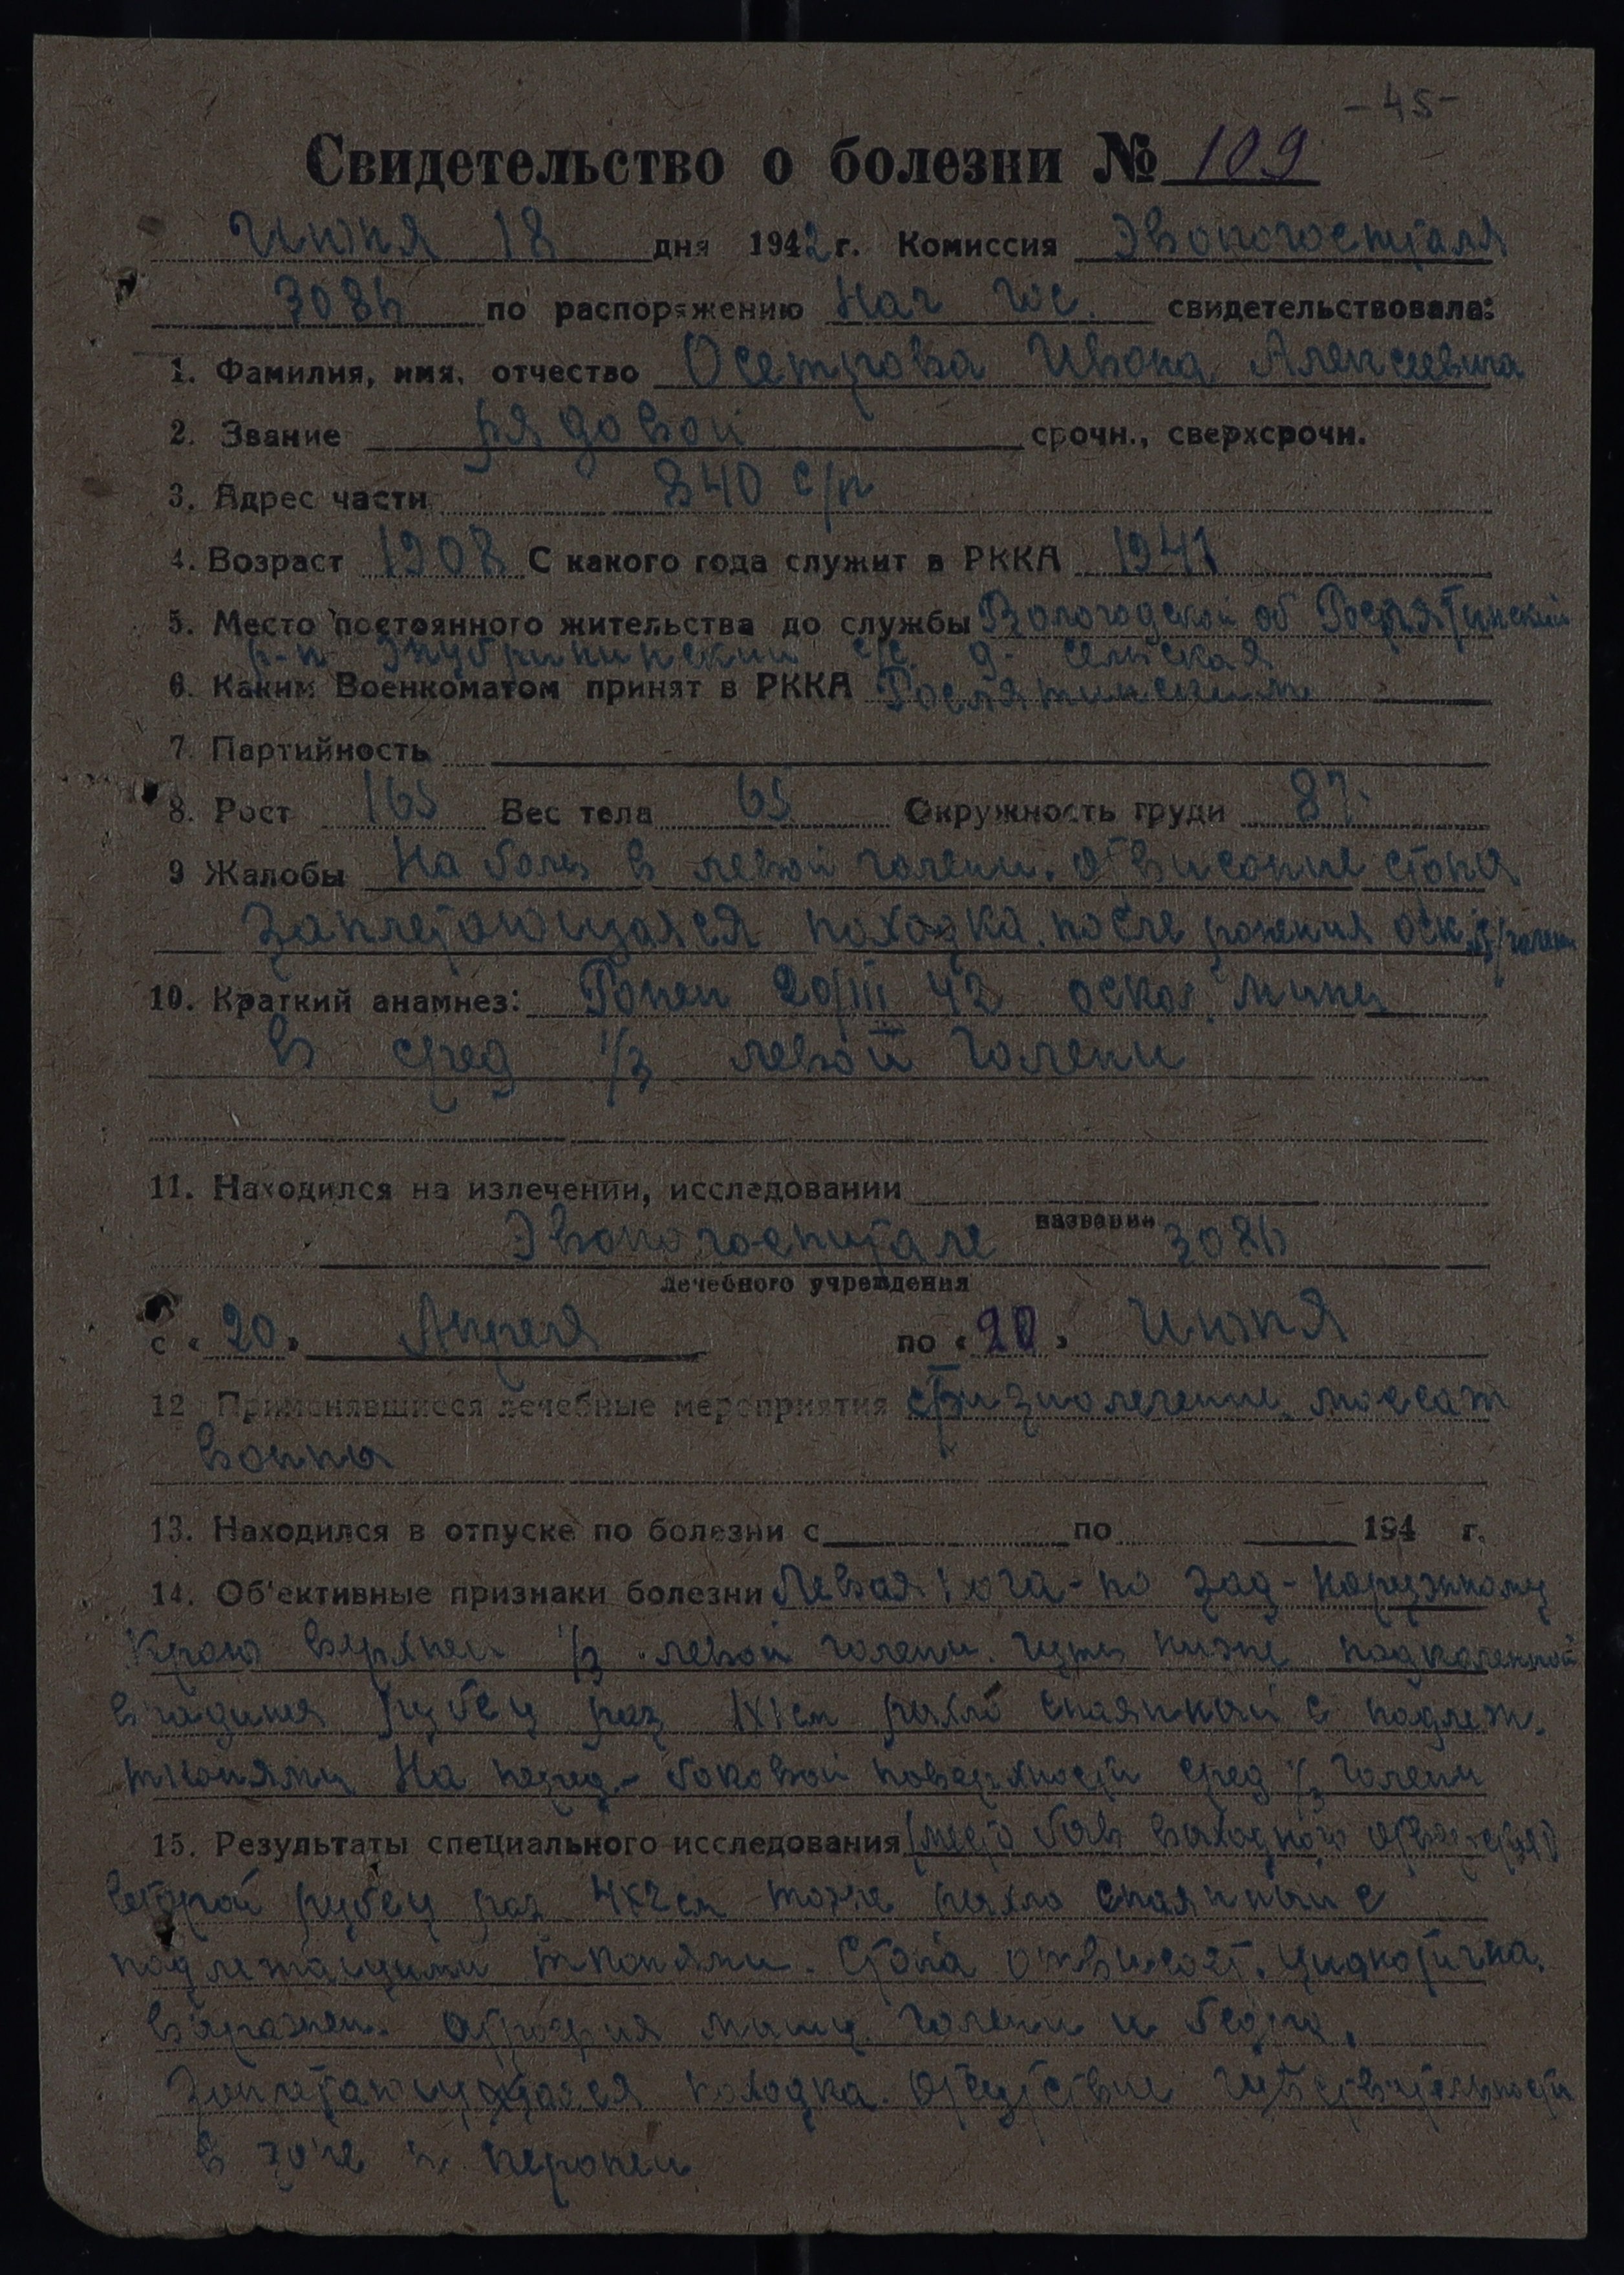 - 45 -
Свидетельство о болезни № 109
Июня 18 дня 1942 г. Комиссия Эвокогоспиталя
3086 по распоряжению Нач гос. свидетельствовала:
1. Фамилия, имя, отчество Осетрова Ивана Алексеевича
2. Звание рядовой срочн., сверхсрочн.
3. Адрес части 840 с/п
4. Возраст 1908 С какого года служит в РККА 1941
5. Место постоянного жительства до службы Вологодской об Рослятинский
р-н с/с. д. сельская
6. Каким Военкоматом принят в РККА Рослятинским
7. Партийность
8. Рост 165 Вес тела 65 Окружность груди 87
9 Жалобы На боль в левой голени. отвисание стопы
Заплетающаяся походка. после ранения оск. голени
10. Краткий анамнез: Ранен 20/III 42 оскол. мины
в сред 1/3 левой голени
11. Находился на излечении, исследовании
название
Эвокогоспитале 3086
лечебного учреждения
с « 20 » Апреля по « 20 » Июня
12 Применявшиеся лечебные мероприятия физиолечение, массаж
ванны
13. Находился в отпуске по болезни с по 194 г.
14. Об'ективные признаки болезни Левая нога - по зад - наружному
краю верхней 1/3 левой голени. чуть ниже подколенной
впадины рубец раз 1х1 см рыхло спаянный с подлеж.
тканями На перед - боковой поверхности сред 1/3 голени
15. Результаты специального исследования (место быв входного отверстия)
второй рубец раз 4х2 см тоже рыхло спаянный с
подлежащими тканями. Стопа отвисает.
выражен. атрофия мышц голени и бедра.
Заплетающаяся походка. отсутствие чувствительности
в зоне н. перонеи